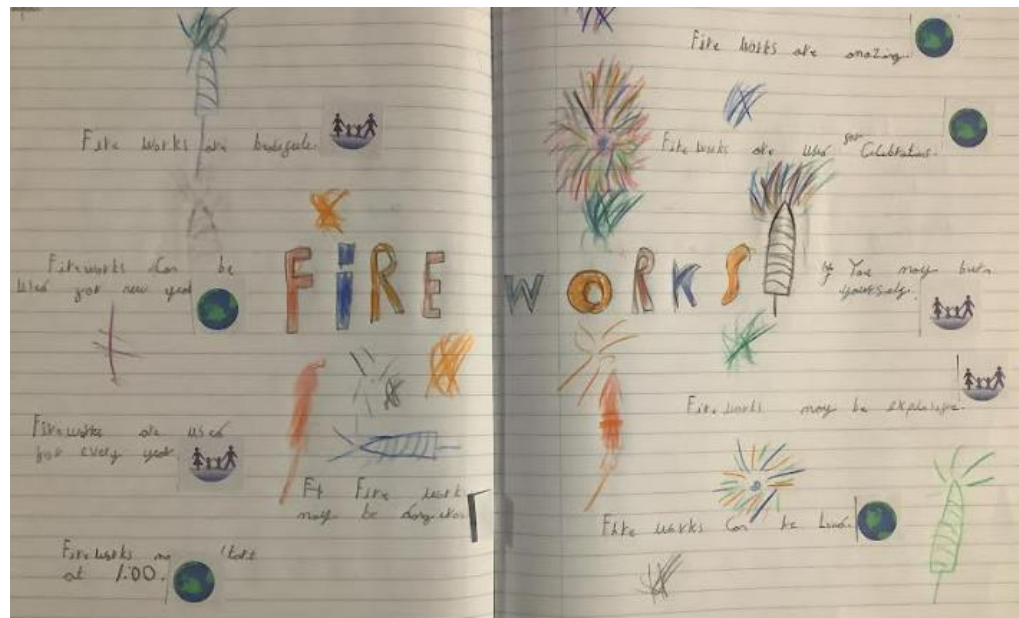 Fire works are
Fireworks can be
used for new year
Fireworks are used
for every year.
Fireworks
at 1:00.
FiRE WORKS
Ft Fire work
may be
Fire works are amazing.
Fire works are used for Celebrations.
You may burn
yourself.
Fire works may be explosive.
Fire works can be loud.